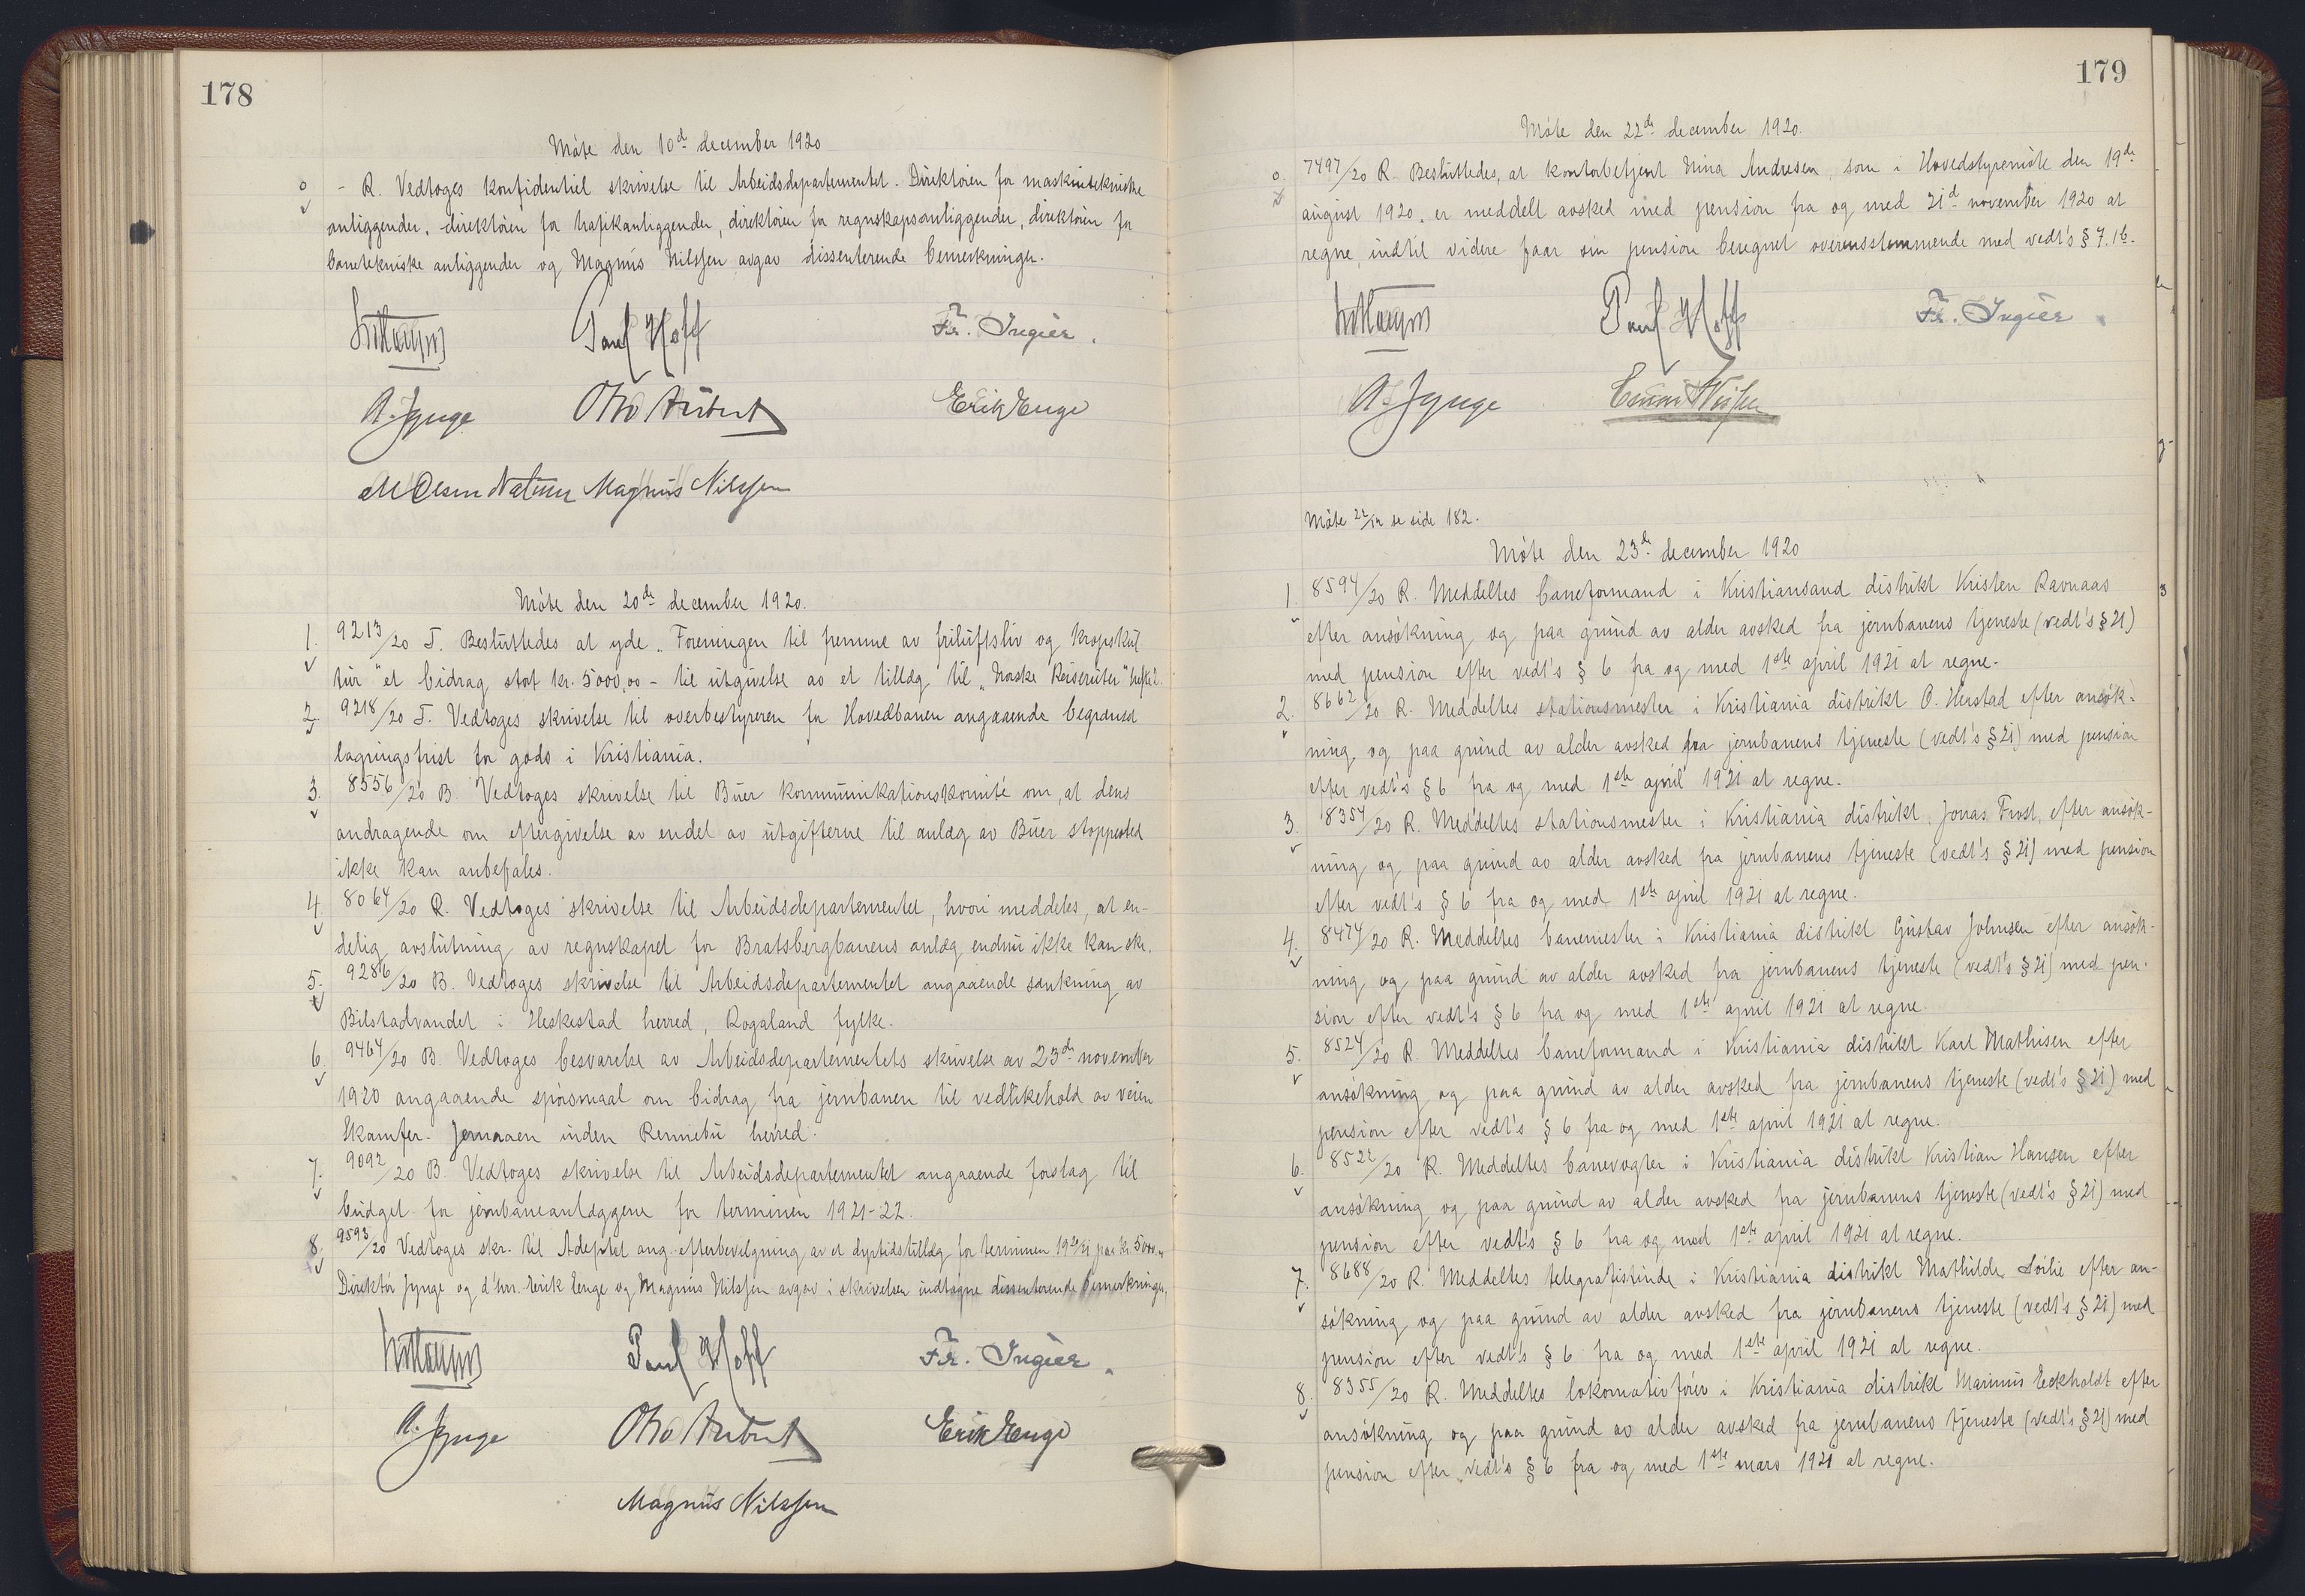 178
Møte den 10d december 1920
0 - R. Vedtoges konfidentiel skrivelse til Arbeidsdepartementet. Direktøren for maskintekniske
anliggender, direktøren for trafikanliggender, direktøren for regnskapsanliggender, direktøren for
banetekniske anliggender og Magnus Nilssen avgav dissenterende bemerkninger.
Paul Hoff Fr. Ingier.
A. Jynge Otto Aubert Erik Enge
Magnus Nilssen
Møte den 20de december 1920.
1. 9213/20 T. Besluttedes at yde „Foreningen til fremme av friluftsliv og kropskul-
tur" et bidrag stort kr. 5000,00 - til utgivelse av et tillæg til „Norske Reiseruter" hefte 2.
2. 9218/20 T. Vedtoges skrivelse til overbestyreren for Hovedbanen angaaende begrænset
lagringsfrist for gods i Kristiania.
3. 8556/20 B. Vedtoges skrivelse til Buer kommunikationskomité om, at dens
andragende om eftergivelse av endel av utgifterne til anlæg av Buer stoppested
ikke kan anbefales.
4. 8064/20 R. Vedtoges skrivelse til Arbeidsdepartementet, hvori meddeles, at en-
delig avslutning av regnskapet for Bratsbergbanens anlæg endnu ikke kan ske.
5. 9286/20 B. Vedtoges skrivelse til Arbeidsdepartementet angaaende sænkning av
Bilstadvandet i Heskestad herred, Rogaland fylke.
6. 9464/20 B. Vedtoges besvarelse av Arbeidsdepartementets skrivelse av 23de november
1920 angaaende spørsmaal om bidrag fra jernbanen til vedlikehold av veien
Skamfer - Jernaaen inden Rennebu herred.
7. 9092/20 B. Vedtoges skrivelse til Arbeidsdepartementet angaaende forslag til
budget for jernbaneanlæggene for terminen 1921-22.
8. 9593/20 Vedtoges skr. til Adeptet ang. efterbevilgning av et dyrtidstillæg for terminen 1920/21 paa kr. 5000
Direktør Jynge og d'hrr. Erick Enge og Magnus Nilssen avgav i skrivelsen indtagne dissenterende bemerkninger.
Paul Hoff Fr. Ingier.
A. Jynge Otto Aubert Erik Enge
Magnus Nilssen
179
Møte den 22de december 1920.
0. 7497/20 R. Besluttedes, at kontorbetjent Nina Andresen, som i Hovedstyremøte den 19de
august 1920, er meddelt avsked med pension fra og med 21d november 1920 at
regne, indtil videre faar sin pension beregnet overensstemmende med vedt's § 7.1b.
Paul Hoff Fr. Ingier
A. Jynge
Møte 22/12 se side 182.
Møte den 23de december 1920
1. 8594/20 R. Meddeltes baneformand i Kristiansand distrikt Kristen Ravnaas
efter ansøkning og paa grund av alder avsked fra jernbanens tjeneste (vedt's § 21)
med pension efter vedt's § 6 fra og med 1ste april 1921 at regne.
2. 8662/20 R. Meddeltes stationsmester i Kristiania distrikt O. Herstad efter ansøk-
ning og paa grund av alder avsked fra jernbanens tjeneste (vedt's § 21) med pension
efter vedt's § 6 fra og med 1ste april 1921 at regne.
3. 8354/20 R. Meddeltes stationsmester i Kristiania distrikt, Jonas Frost, efter ansøk-
ning og paa grund av alder avsked fra jernbanens tjeneste (vedt's § 21) med pension
efter vedt's § 6 fra og med 1ste april 1921 at regne.
4. 8474/20 R. Meddeltes banemester i Kristiania distrikt Gustav Johnsen efter ansøk-
ning og paa grund av alder avsked fra jernbanens tjeneste (vedt's § 21) med pen-
sion efter vedt's § 6 fra og med 1ste april 1921 at regne.
5. 8524/20 R. Meddeltes baneformand i Kristiania distrikt Karl Mathisen efter
ansøkning og paa grund av alder avsked fra jernbanens tjeneste (vedt's § 21) med
pension efter vedt's § 6 fra og med 1ste april 1921 at regne.
6. 8522/20 R. Meddeltes banevogter i Kristiania distrikt Kristian Hansen efter
ansøkning og paa grund av alder avsked fra jernbanens tjeneste (vedt's § 21) med
pension efter vedt's § 6 fra og med 1ste april 1921 at regne.
7. 8688/20 R. Meddeltes telegrafistinde i Kristiania distrikt Mathilde Sørlie efter an-
søkning og paa grund av alder avsked fra jernbanens tjeneste (vedt's § 21) med
pension efter vedt's § 6 fra og med 1ste april 1921 at regne.
8. 8355/20 R. Meddeltes lokomotivfører i Kristiania distrikt Marinius Eckholdt efter
ansøkning og paa grund av alder avsked fra jernbanens tjeneste (vedt's § 21) med
pension efter vedt's § 6 fra og med 1ste mars 1921 at regne.